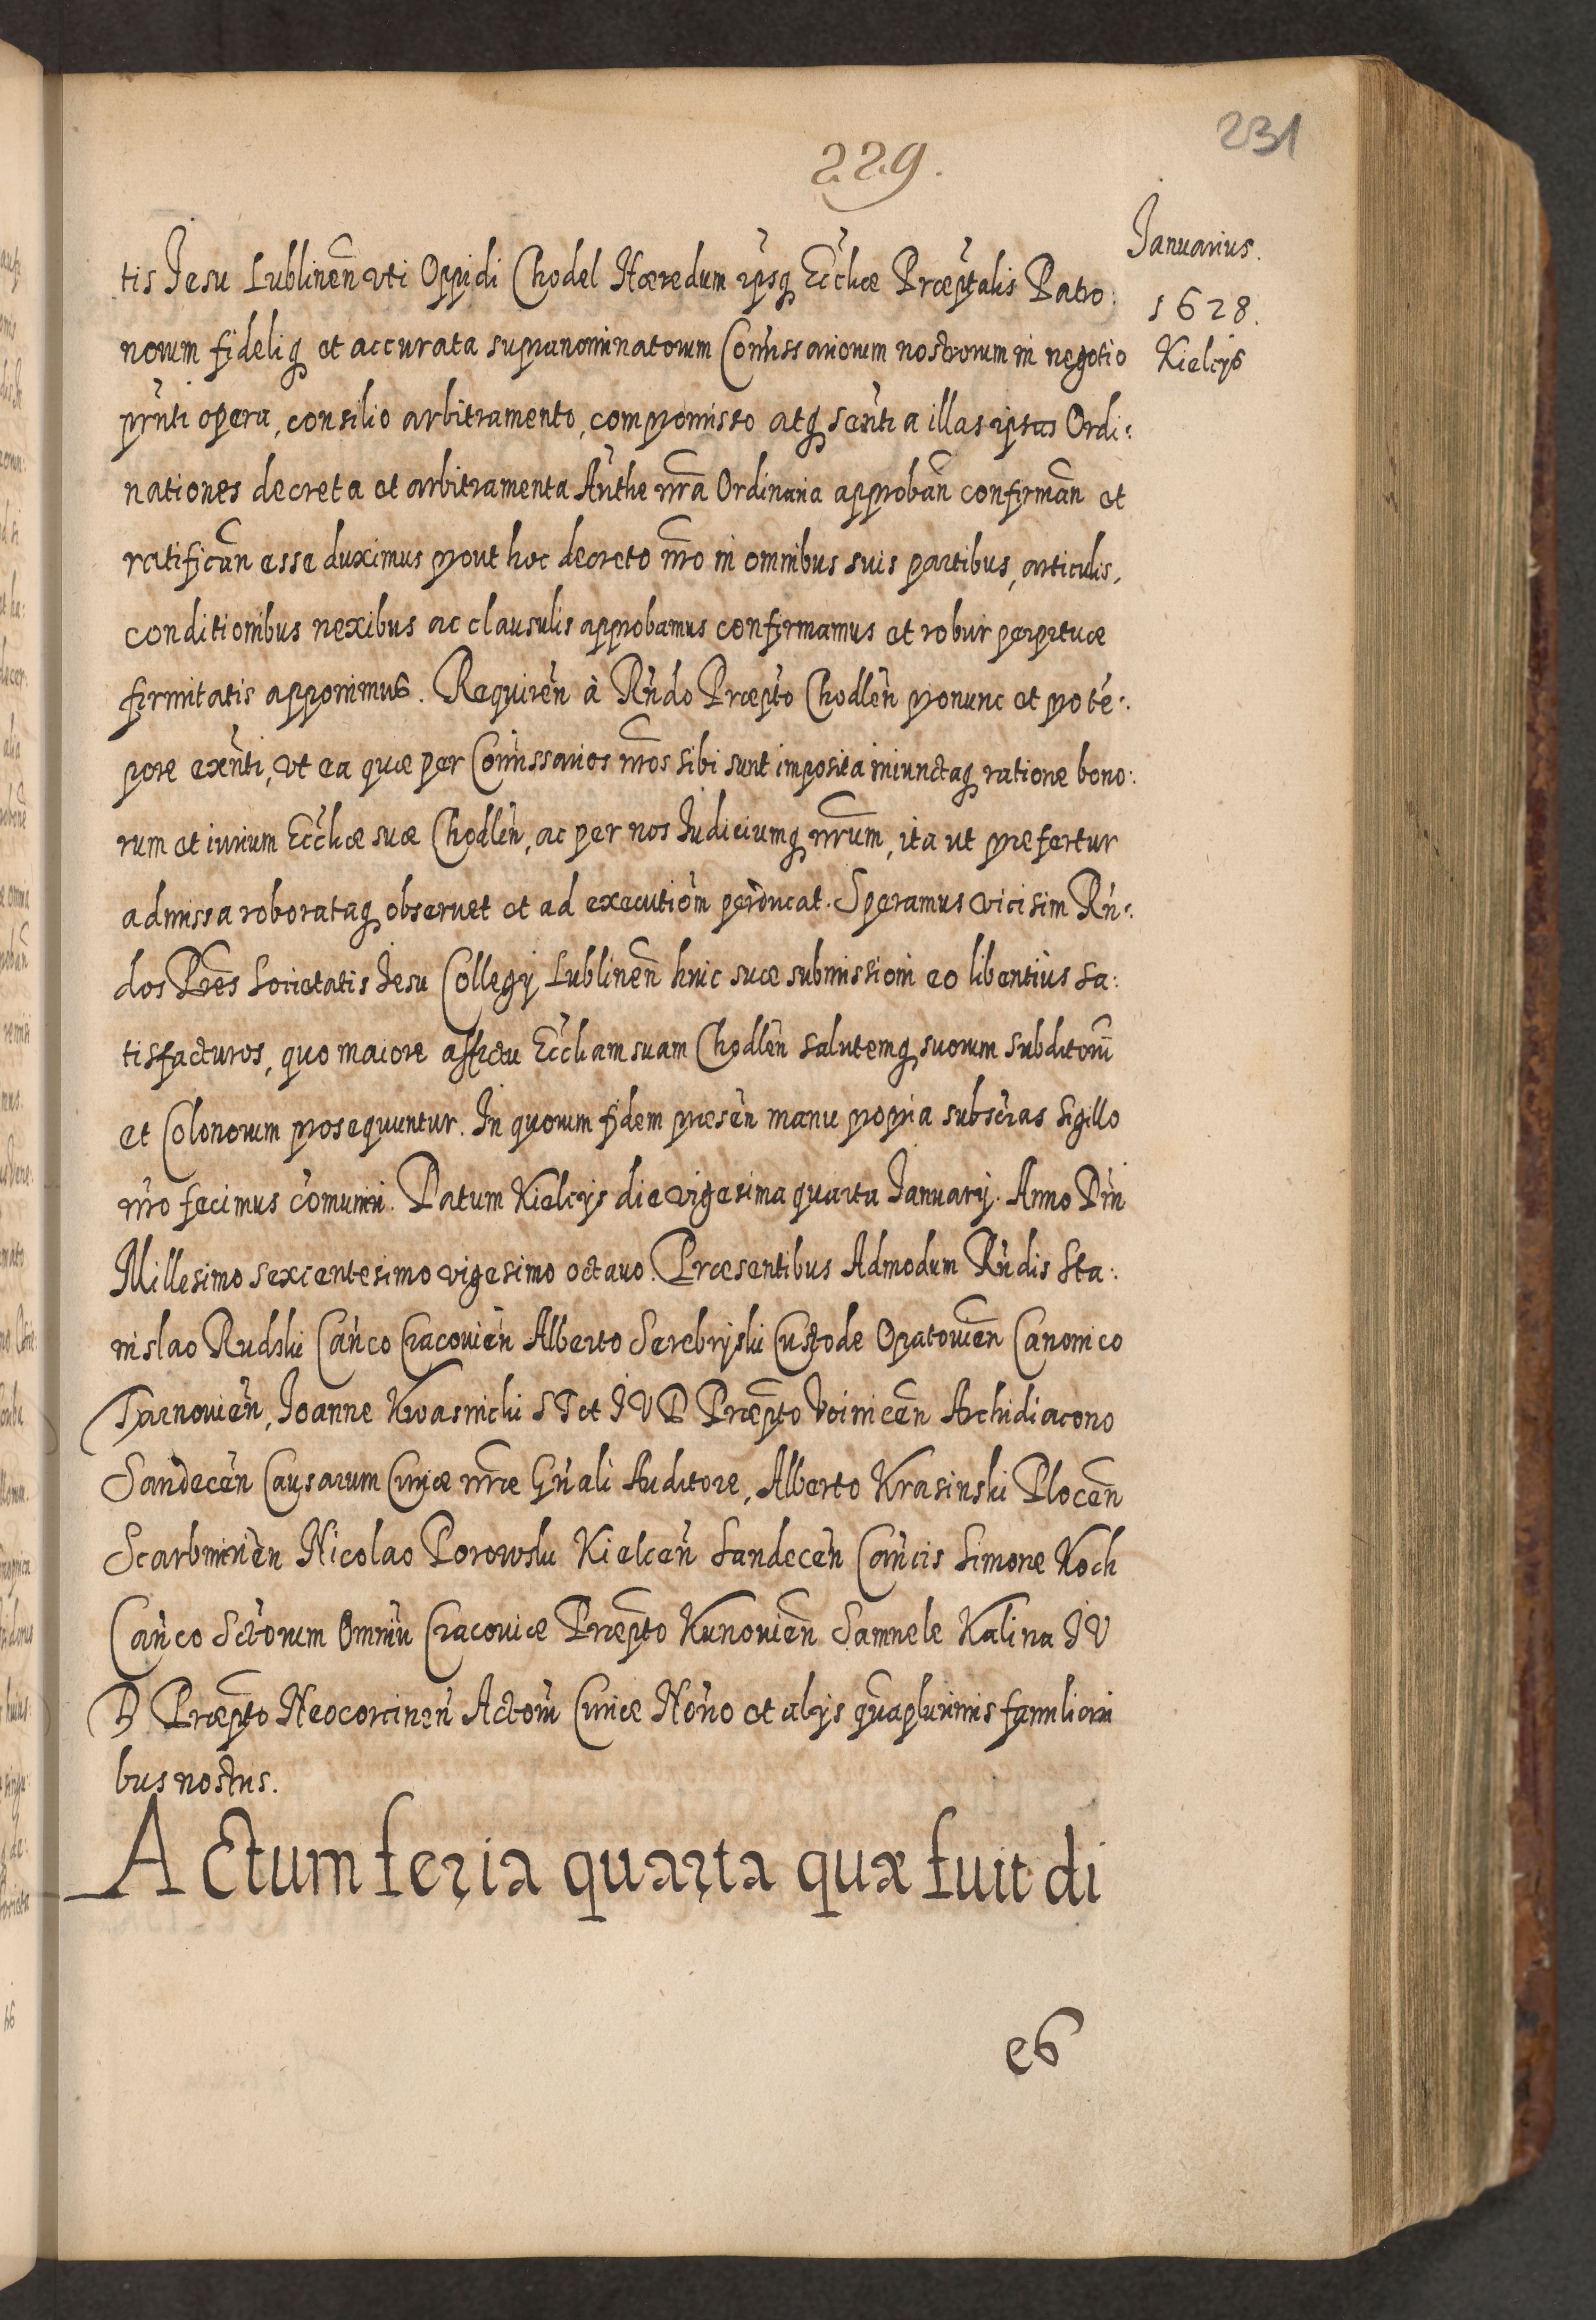 229.
231
Januarius.
1628.
Kielcys
tis Jesu Lublinen̄ uti Oppidi Chodel Hæredum ipsq̨ Eccliæ Præptalis Patro:
norum fideliq̨ et accurata supranominatorum Com̄issariorum nostrorum in negotio
prn̄ti opera, consilio arbitramento, compromisso atq̨ sen̄tia illas ipsas Ordi:
nationes decreta et arbitramenta Authe nr̄a Ordinaria approban̄ confirman̄ et
ratifican̄ esse duximus prout hoc decreto nr̄o in omnibus suis partibus, articulis,
conditionibus nexibus ac clausulis approbamus confirmamus et robur perpetuæ
firmitatis apponimus. Requiren̄ à Rn̄do Præpto Chodlen̄ pronunc et pro te̅:
pore exn̄ti, ut ea quæ per Com̄issarios nr̄os sibi sunt imposita iniunctaq̨ ratione bono:
rum et iurium Eccliæ suæ Chodlen̄, ac per nos Iudiciumq̨ nr̄um, ita ut prefertur
admissa roborataq̨ obseruet et ad executiōm perducat. Speramus vicisim Rn̄:
dos Pr̄es Societatis Jesu Collegij Lublinen̄ huic suæ submissioni eo libentiùs sa:
tisfacturos, quo maiore affectu Eccliam suam Chodlen̄ salutemq̨ suorum subditorum̄
et Colonorum prosequuntur. In quorum fidem præsen̄ manu propria subscras sigillo
nr̄o fecimus com̄uniri. Datum Kielcys die vigesima quarta Januarij. Anno Dn̄i
Millesimo sexcentesimo vigesimo octauo. Præsentibus Admodum Rn̄dis Sta:
nislao Rudski Can̄co Cracouien̄ Alberto Serebryski Custode Opatouien̄ Canonico
Tarnouien̄, Joanne Kwasnicki S T et J V D Præpto Voinicen̄ Archidiacono
Sandecen̄ Causarum Curiæ nr̄æ Gn̄ali Auditore, Alberto Krasinski Plocen̄
Scarbimirien̄ Nicolao Porowski Kielcen̄ Sandecen̄ Can̄cis Simone Koch
Can̄co Sctorum Omniū Cracouiæ Præpto Kunouien̄ Samuele Kalina J V
D Præpto Neocorcinen̄ Actorum̄ Curiæ Nōrio et alys quāplurimis familiari
bus nostris.
ACtum feria quarta quæ fuit di
es